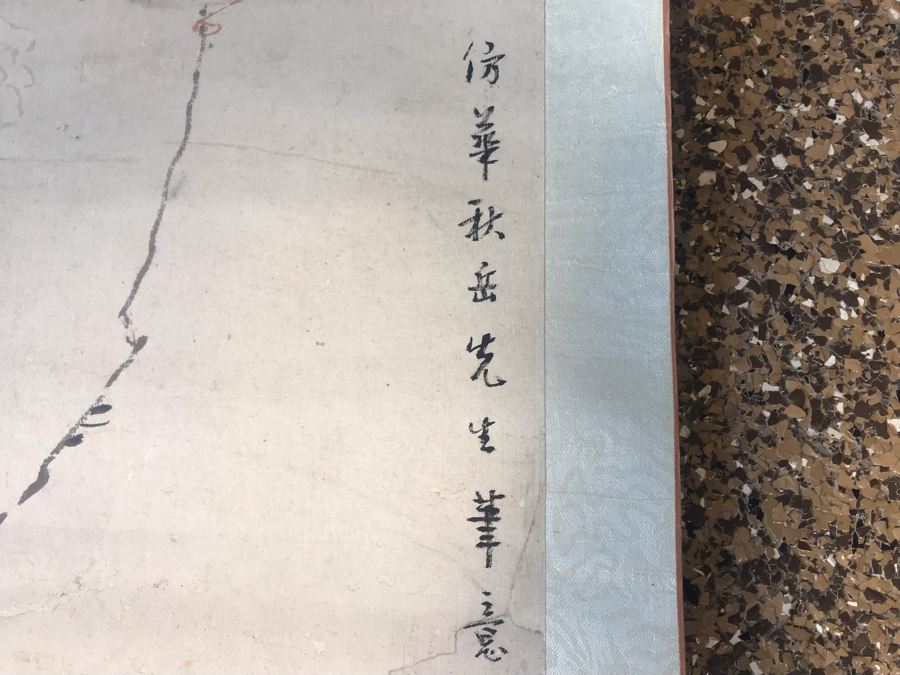 仿華秋岳先生筆意